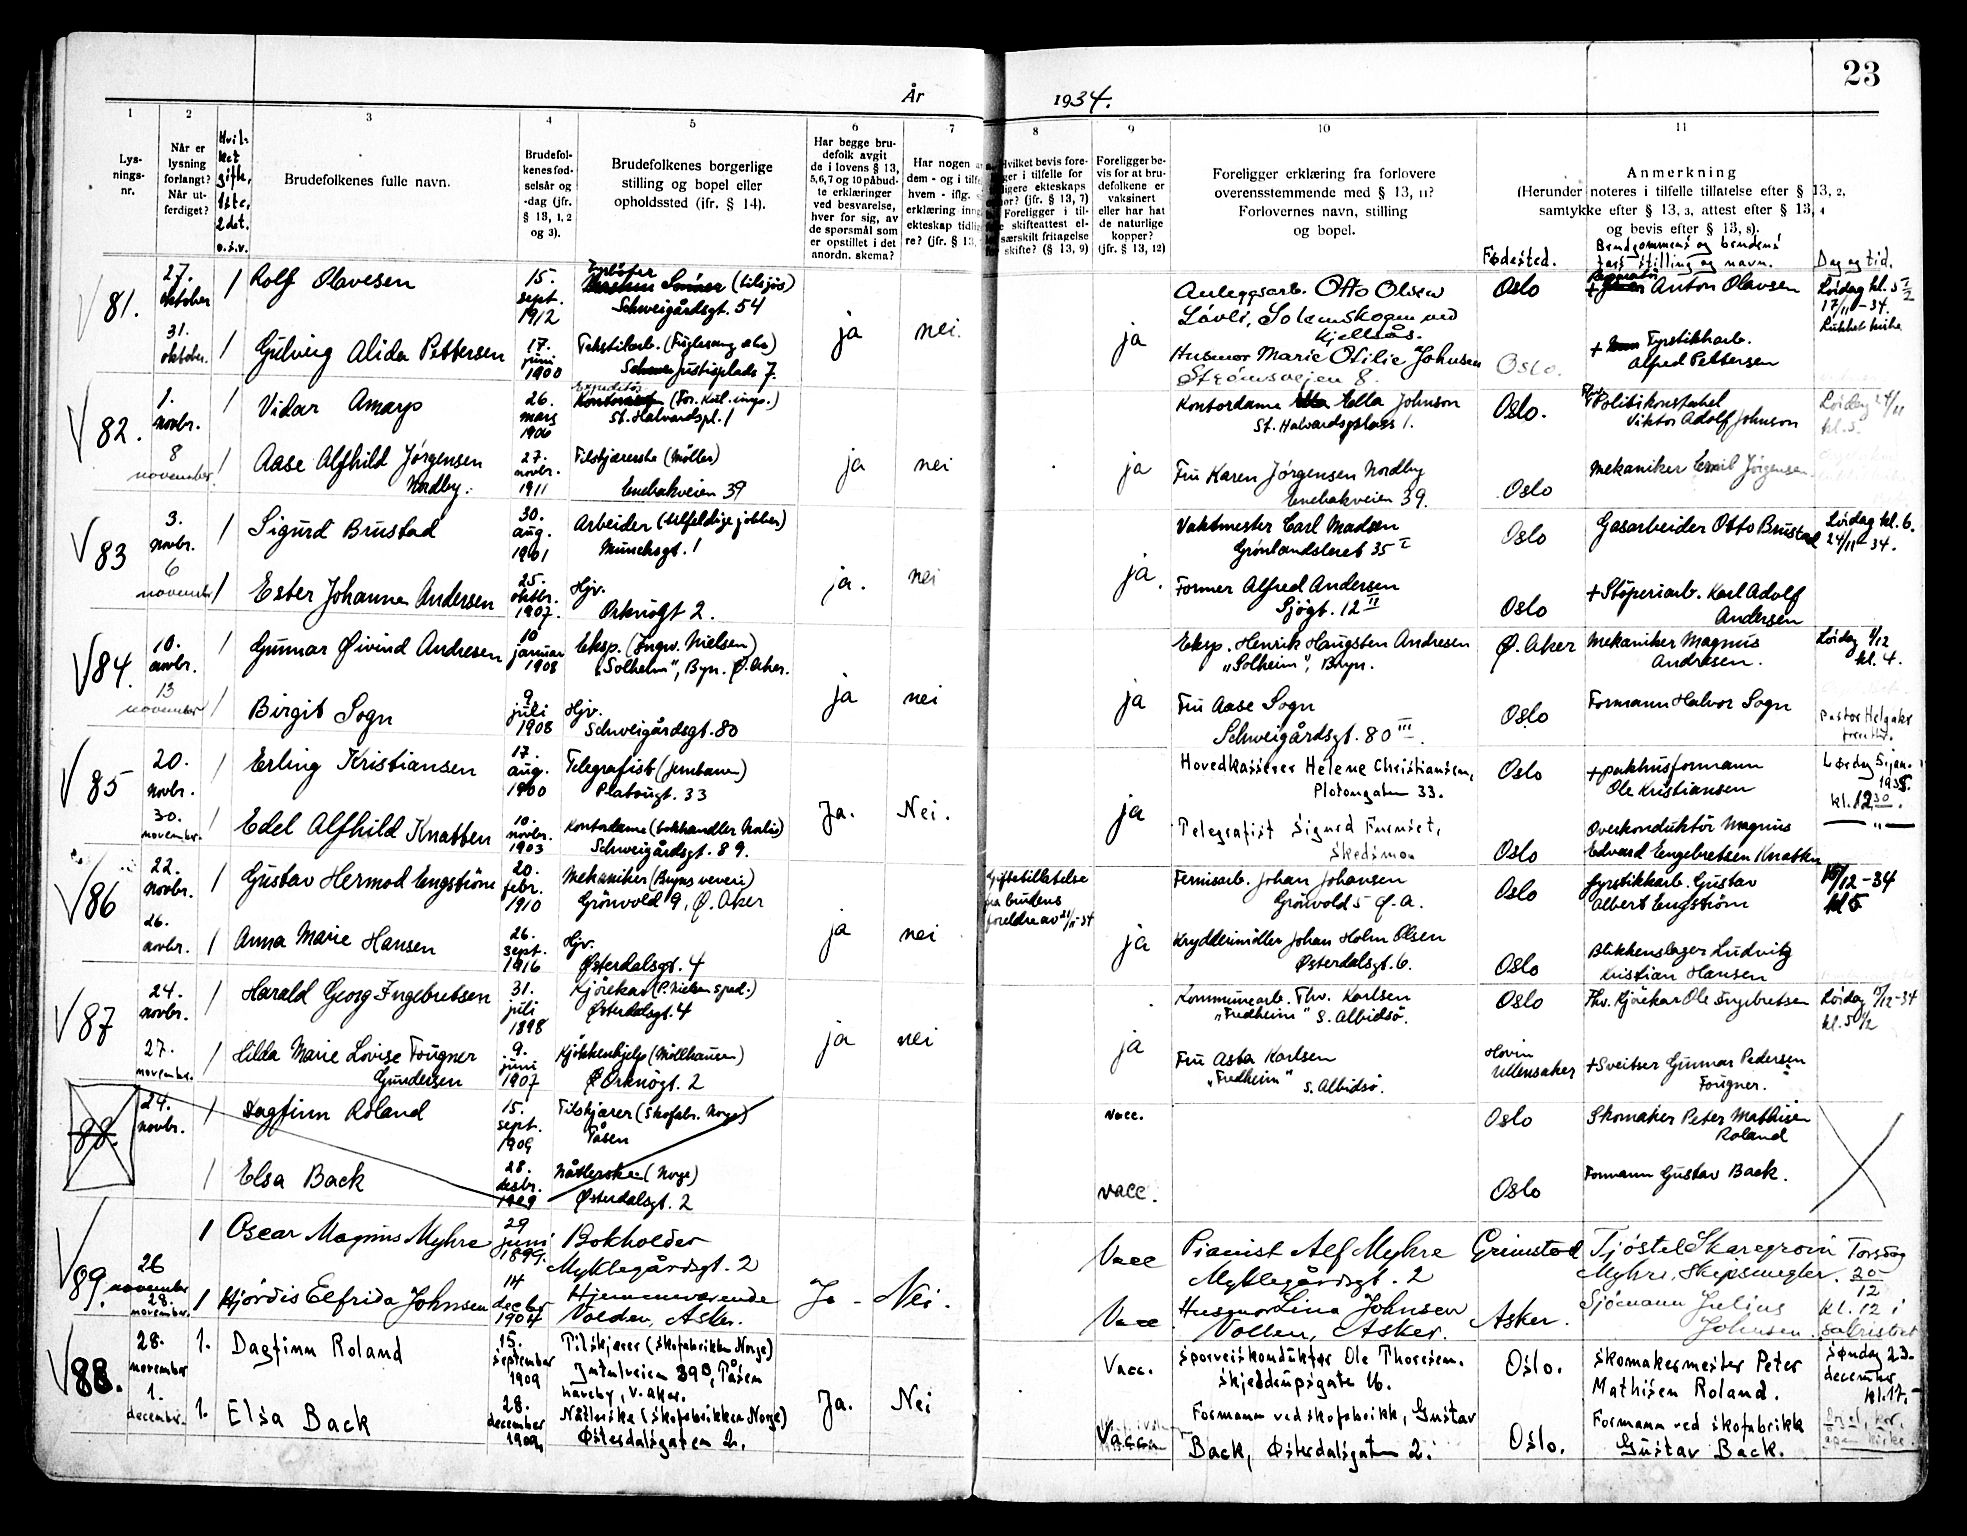 23
År 1934.
1 2 3 4 5 6 7 8 9 10 11
Lys-
nings-
nr.
Når er
lysning
forlangt?
Når ut-
ferdiget?
Hvil-
ket
gifte,
1ste,
2det.
o.s.v.
Brudefolkenes fulle navn.
Brudefol-
kenes fød-
selsår og
-dag (jfr.
§ 13, 1, 2
og 3).
Brudefolkenes borgerlige
stilling og bopel eller
opholdssted (jfr. § 14).
Har begge bru-
defolk avgit
de i lovens § 13,
5, 6, 7 og 10 påbud-
te erklæringer
ved besvarelse,
hver for sig, av
de spørsmål som
er opstillet i det
anordn. skema?
Har nogen
dem - og i tilf
hvem - iflg.
erklæring inng
ekteskap tidlig
re? (jfr. § 13,
Hvilket bevis fore-
ger i tilfelle for
ligere ekteskaps
hør? (jfr. § 13, 7)
Foreligger i til-
skifteattest el-
særskilt fritagelse
skifte? (§ 13, 9)
Foreligger be-
vis for at bru-
defolkene er
vaksinert
eller har hat
de naturlige
kopper?
(jfr. § 13, 12)
Foreligger erklæring fra forlovere
overensstemmende med § 13, 11?
Forlovernes navn, stilling
og bopel.
Fødested.
Anmerkning
(Herunder noteres i tilfelle tillatelse efter § 13, 2,
samtykke efter § 13, 3, attest efter § 13, 4
og bevis efter § 13, 8).
Brudgommens og brudens
fars stilling og navn.
Dag og tid.
81.
27.
oktober
1 Rolf Olavesen
15.
sept.
1912
(tilsjøs)
Schweigårdsgt. 54
Anleggsarb. Otto Olsen
Løvli, Solemskogen ved
Kjelsås.
Oslo
Anton Olavsen
Lørdag kl. 5 1/2
17/11-34.
Lukket kirke
31.
oktober.
1 Gulveig Alida Pettersen
17.
juni
1900
Tekstilarb.
Justisplads 7.
ja
nei.
ja
Husmor Marie Otilie Johnsen
Strømsveien 8.
Oslo.
+ Fyrstikkarb.
Alfred Pettersen
82.
1.
novbr.
1 Vidar Amarp
26.
mars
1906
Expeditør
St. Halvardspl. 1
Kontordame Ella Johnson
St. Halvardsplass 1.
Oslo.
Politikonstabel
Viktor Adolf Johnson
Lørdag 24/11
kl. 5.
8
november.
1 Aase Alfhild Jørgensen
Nordby.
27.
novbr.
1911
Tilskjærerske (Møller)
Enebakveien 39
ja
nei
ja
Fru Karen Jørgensen Nordby
Enebakveien 39.
Oslo
Mekaniker Emil Jørgensen
83
3.
novbr.
1 Sigurd Brustad
30.
aug.
1901
Arbeider (tilfeldige jobber)
Munchsgt. 1
Vaktmester Carl Madsen
Grønlandsleret 35 I
Oslo
Gasarbeider Otto Brustad
Lørdag kl. 6.
24/11-34.
6
november
1 Ester Johanne Andersen
25.
oktbr.
1907.
Hjv.
Orknøgt 2.
ja.
nei
ja.
Former Alfred Andersen
Sjøgt. 12 II
Oslo
+ Støperiarb. Karl Adolf
Andersen
84.
10.
novbr.
1 Gunnar Øivind Andresen
10
januar
1908
Eksp. (Ingw. Nielsen)
"Solheim", Bryn. Ø. Aker.
Eksp. Henrik Haugsten Andresen
"Solheim", Bryn.
Ø. Aker
Mekaniker Magnus
Andresen.
Lørdag 1/12
kl. 4.
13
november
1 Birgit Sogn
9
juli
1908
Hjv.
Schweigårdsgt. 80
ja
nei
ja
Fru Aase Sogn
Schweigårdsgt. 80 III.
Oslo
Formann Halvor Sogn
Pastor
85
20.
novbr.
1 Erling Kristiansen
17.
aug.
1900
Telegrafist (jernbanen)
Platougt. 33
Hovedkasserer Helene Christiansen,
Platougaten 33.
Oslo
+ pakhusformann
Ole Kristiansen
Lørdag 5 jan.
1935.
kl. 12 30.
30.
november.
1 Edel Alfhild Knatten
10.
novbr.
1903
Kontordame (bokhandler Norlis)
Schweigårdsgt. 89.
Ja.
Nei.
ja
Telegrafist Sigurd Furuset,
Skedsmo
Oslo
Overkonduktør Magnus
Edvard Engebretsen Knatten
86
22.
novbr.
1 Gustav Hermod Engstrøm
20.
febr.
1910
Mekaniker (Bryns veveri)
Grønvold 9, Ø. Aker
Giftetillatelse
fra brudens
foreldre av 21/11-34
Fernisarb. Johan Johansen
Grønvold 5 Ø. A.
Oslo
Fyrstikkarb. Gustav
Albert Engstrøm
15/12-34
kl 5
26.
novbr.
1 Anna Marie Hansen
26.
sept.
1916
Hjv.
Østerdalsgt. 4
ja
nei
ja
Kryddermøller Johan Holm Olsen
Østerdalsgt. 6.
Oslo
Blikkenslager Ludvig
Kristian Hansen
87
24.
novbr.
1 Harald Georg Ingebretsen
31.
juli
1898
Kjørekar (P. Nielsen sped.)
Østerdalsgt. 4
Kommunearb. Thv. Karlsen
"Fredheim" S. Albidsø.
Oslo
Fhv. Kjørekar Ole Ingebretsen
Lørdag 15/12-34
kl. 5 1/2
27.
novembr.
1 Hilda Marie Lovise Fougner
Gundersen
9.
juni
1907
Kjøkkenhjelp (Møllhausen)
Orknøgt. 2
ja
nei
ja
Fru Asta Karlsen
"Fredheim" S. Albidsø.
Hovin
Ullensaker
+ Sveitser Gunnar Pedersen
Fougner.
88.
24.
novbr.
1 Dagfinn Roland
15.
sept.
1909
Tilskjærer (Skofabr. Norge)
Tåsen
vacc.
Oslo
Skomaker Peter Mathisen
Roland
1 Elsa Back
28.
desbr.
1909
Nåtlerske (Norge)
Østerdalsgt. 2
vacc.
Oslo
Formann Gustav Back.
89.
1 Oscar Magnus Myhre
29
juni
1899.
Bokholder
Myklegårdsgt. 2
Vacc
Pianist Alf Myhre
Myklegårdsgt. 2
Grimstad
Tjøstel Skaregrøin
Myhre, Skipsmegler.
Torsdag
20/12
kl. 12 i
sakristiet
26
november
28.
november.
1 Hjördis Elfrida Johnsen
14
decbr
1904
Hjemmeværende
Volden, Asker.
Ja -
Nei.
Vacc
Husmor Lina Johnsen
Vollen, Asker.
Asker.
Sjömann Julius
Johnsen.
88.
28.
november
1. Dagfinn Roland
15.
september
1909
Tilskjærer (Skofabrikken Norge)
39 B, Tåsen
haveby, V. Aker.
Vacc.
Sporveiskonduktør Ole Thoresen.
Skjeldrupsgate 16.
Oslo.
Skomakermester Peter
Mathisen Roland.
Søndag 23.
december
kl. 17.
1.
decembr.
1. Elsa Back
28.
december
1909,
Nåtlerske (Skofabrikken Norge)
Østerdalsgaten 2.
Ja.
Nei
Vaccn
Formann ved skofabrikk, Gustav
Back, Østerdalsgaten 2.
Oslo.
Formann ved skofabrikk
Gustav Back.